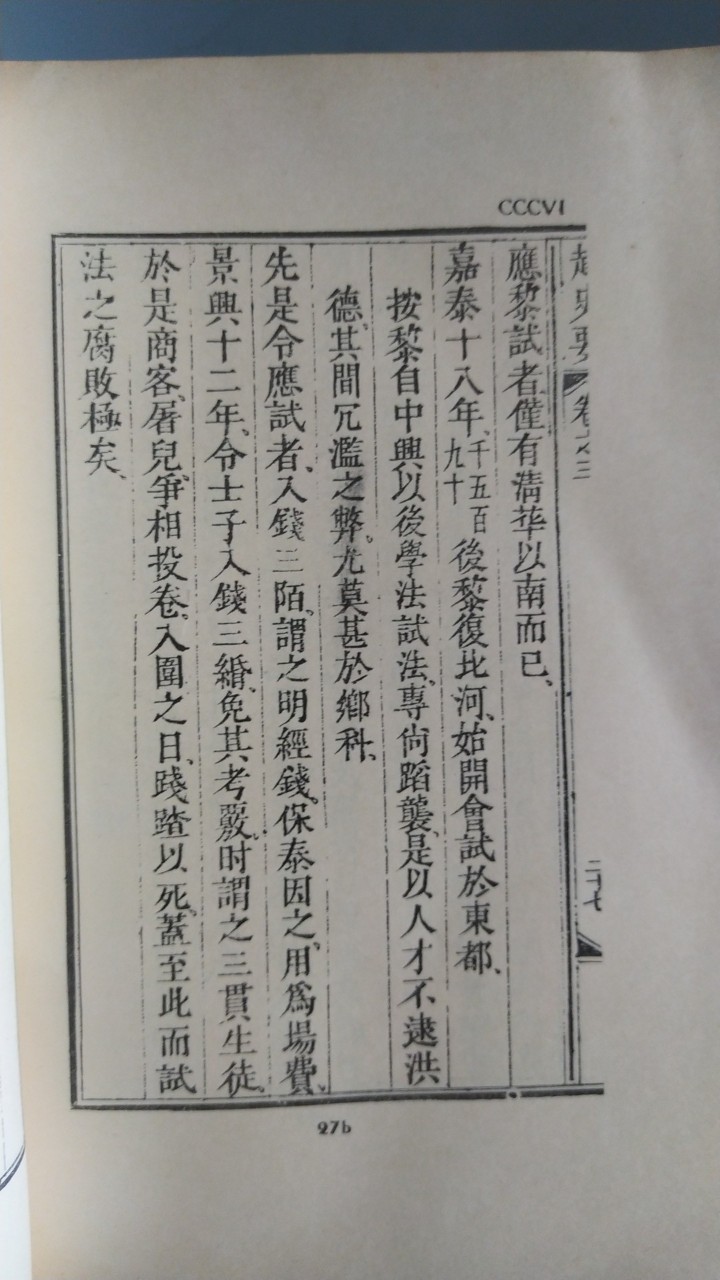 CCCVI
越史要 卷之三
二十七
應黎試者僅有淸華以南而已、
嘉泰十八年、千五百九十後黎復北河、始開會試於東都、
按黎自中興以後學法試法、專尙蹈襲、是以人才不逮洪
德、其間冗濫之弊、尤莫甚於鄉科、
先是令應試者、入錢三陌、謂之明經錢、保泰因之、用爲場費、
景興十二年、令士子入錢三緡、免其考覈、时謂之三貫生徒、
於是商客、屠兒、爭相投卷、入圍之日、踐踏以死、蓋至此而試
法之腐敗極矣、
27b